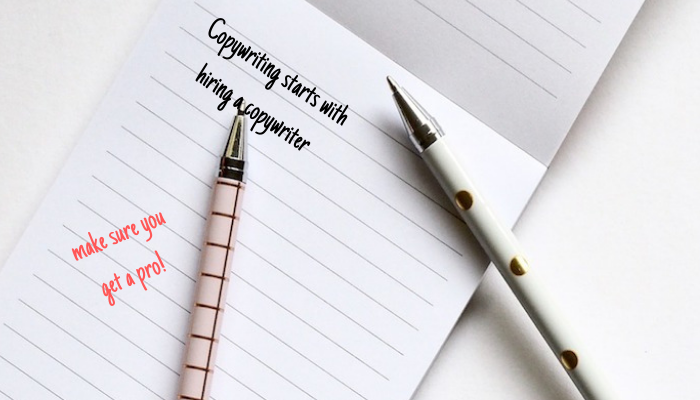 Copywriting starts with
hiring a copywriter
make sure you
get a pro!